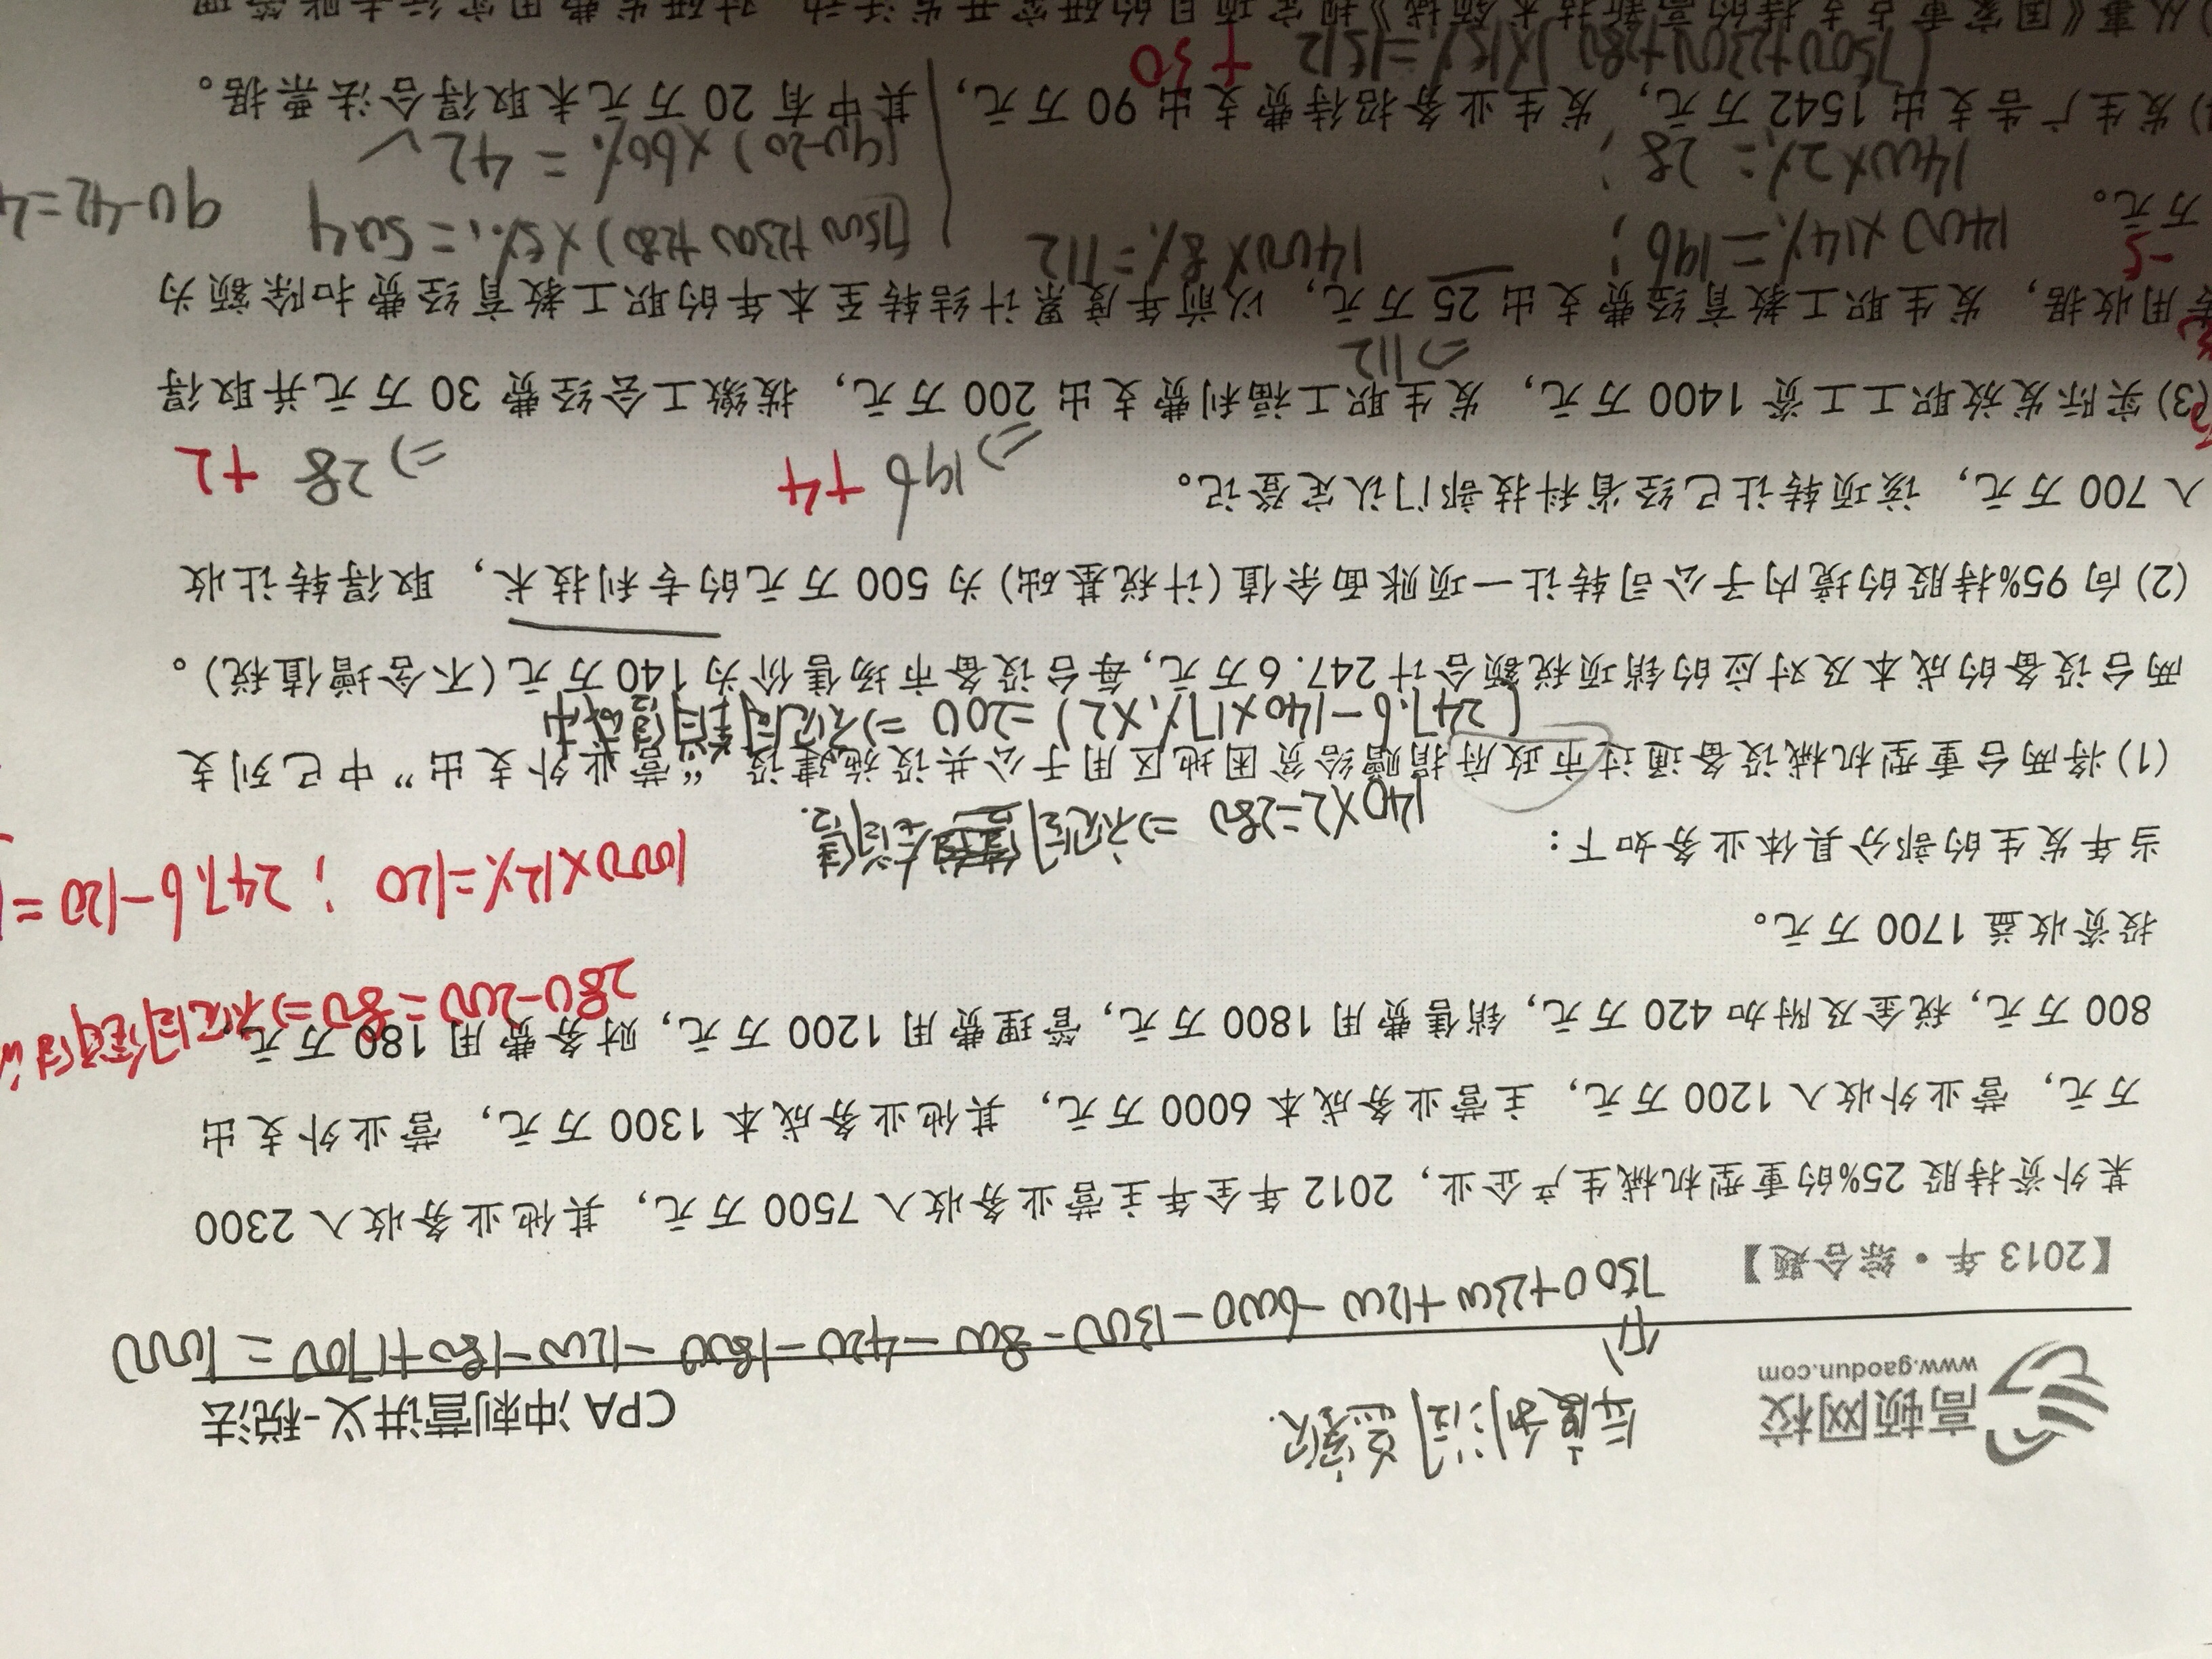 高顿网校
www.gaodun.com
CPA 冲刺营讲义-税法
年度利润总额
7500+2300+1200-6000-1300-800-420-1800-1200-180+1700=1000
【2013 年·综合题】
某外资持股 25%的重型机械生产企业，2012 年全年主营业务收入 7500 万元，其他业务收入 2300
万元，营业外收入 1200 万元，主营业务成本 6000 万元，其他业务成本 1300 万元，营业外支出
800 万元，税金及附加 420 万元，销售费用 1800 万元，管理费用 1200 万元，财务费用 180 万元，
280-200=80
投资收益 1700 万元。
1000×12%=120；247.6-120=
当年发生的部分具体业务如下：
140×2=280
(1)将两台重型机械设备通过市政府捐赠给贫困地区用于公共设施建设。“营业外支出”中已列支
(247.6-140×17%×2)=200
两台设备的成本及对应的销项税额合计 247.6 万元，每台设备市场售价为 140 万元(不含增值税)。
(2)向 95%持股的境内子公司转让一项账面余值(计税基础)为 500 万元的专利技术，取得转让收
入 700 万元，该项转让已经省科技部门认定登记。
⇒196 +4 ⇒28 +2
(3)实际发放职工工资 1400 万元，发生职工福利费支出 200 万元，拨缴工会经费 30 万元并取得
⇒112
用收据，发生职工教育经费支出 25 万元，以前年度累计结转至本年的职工教育经费扣除额为
-5
万元。
1400×14%=196；
1400×8%=112
(7500+2300+280)×5‰=50.4
1400×2%=28；
(90-20)×60%=42✓
90-42=4
)发生广告支出 1542 万元，发生业务招待费支出 90 万元，其中有 20 万元未取得合法票据。
(7500+2300+280)×15%=1512 +30
)从事《国家重点支持的高新技术领域》规定项目的研究开发活动，对研发费用实行专账管理